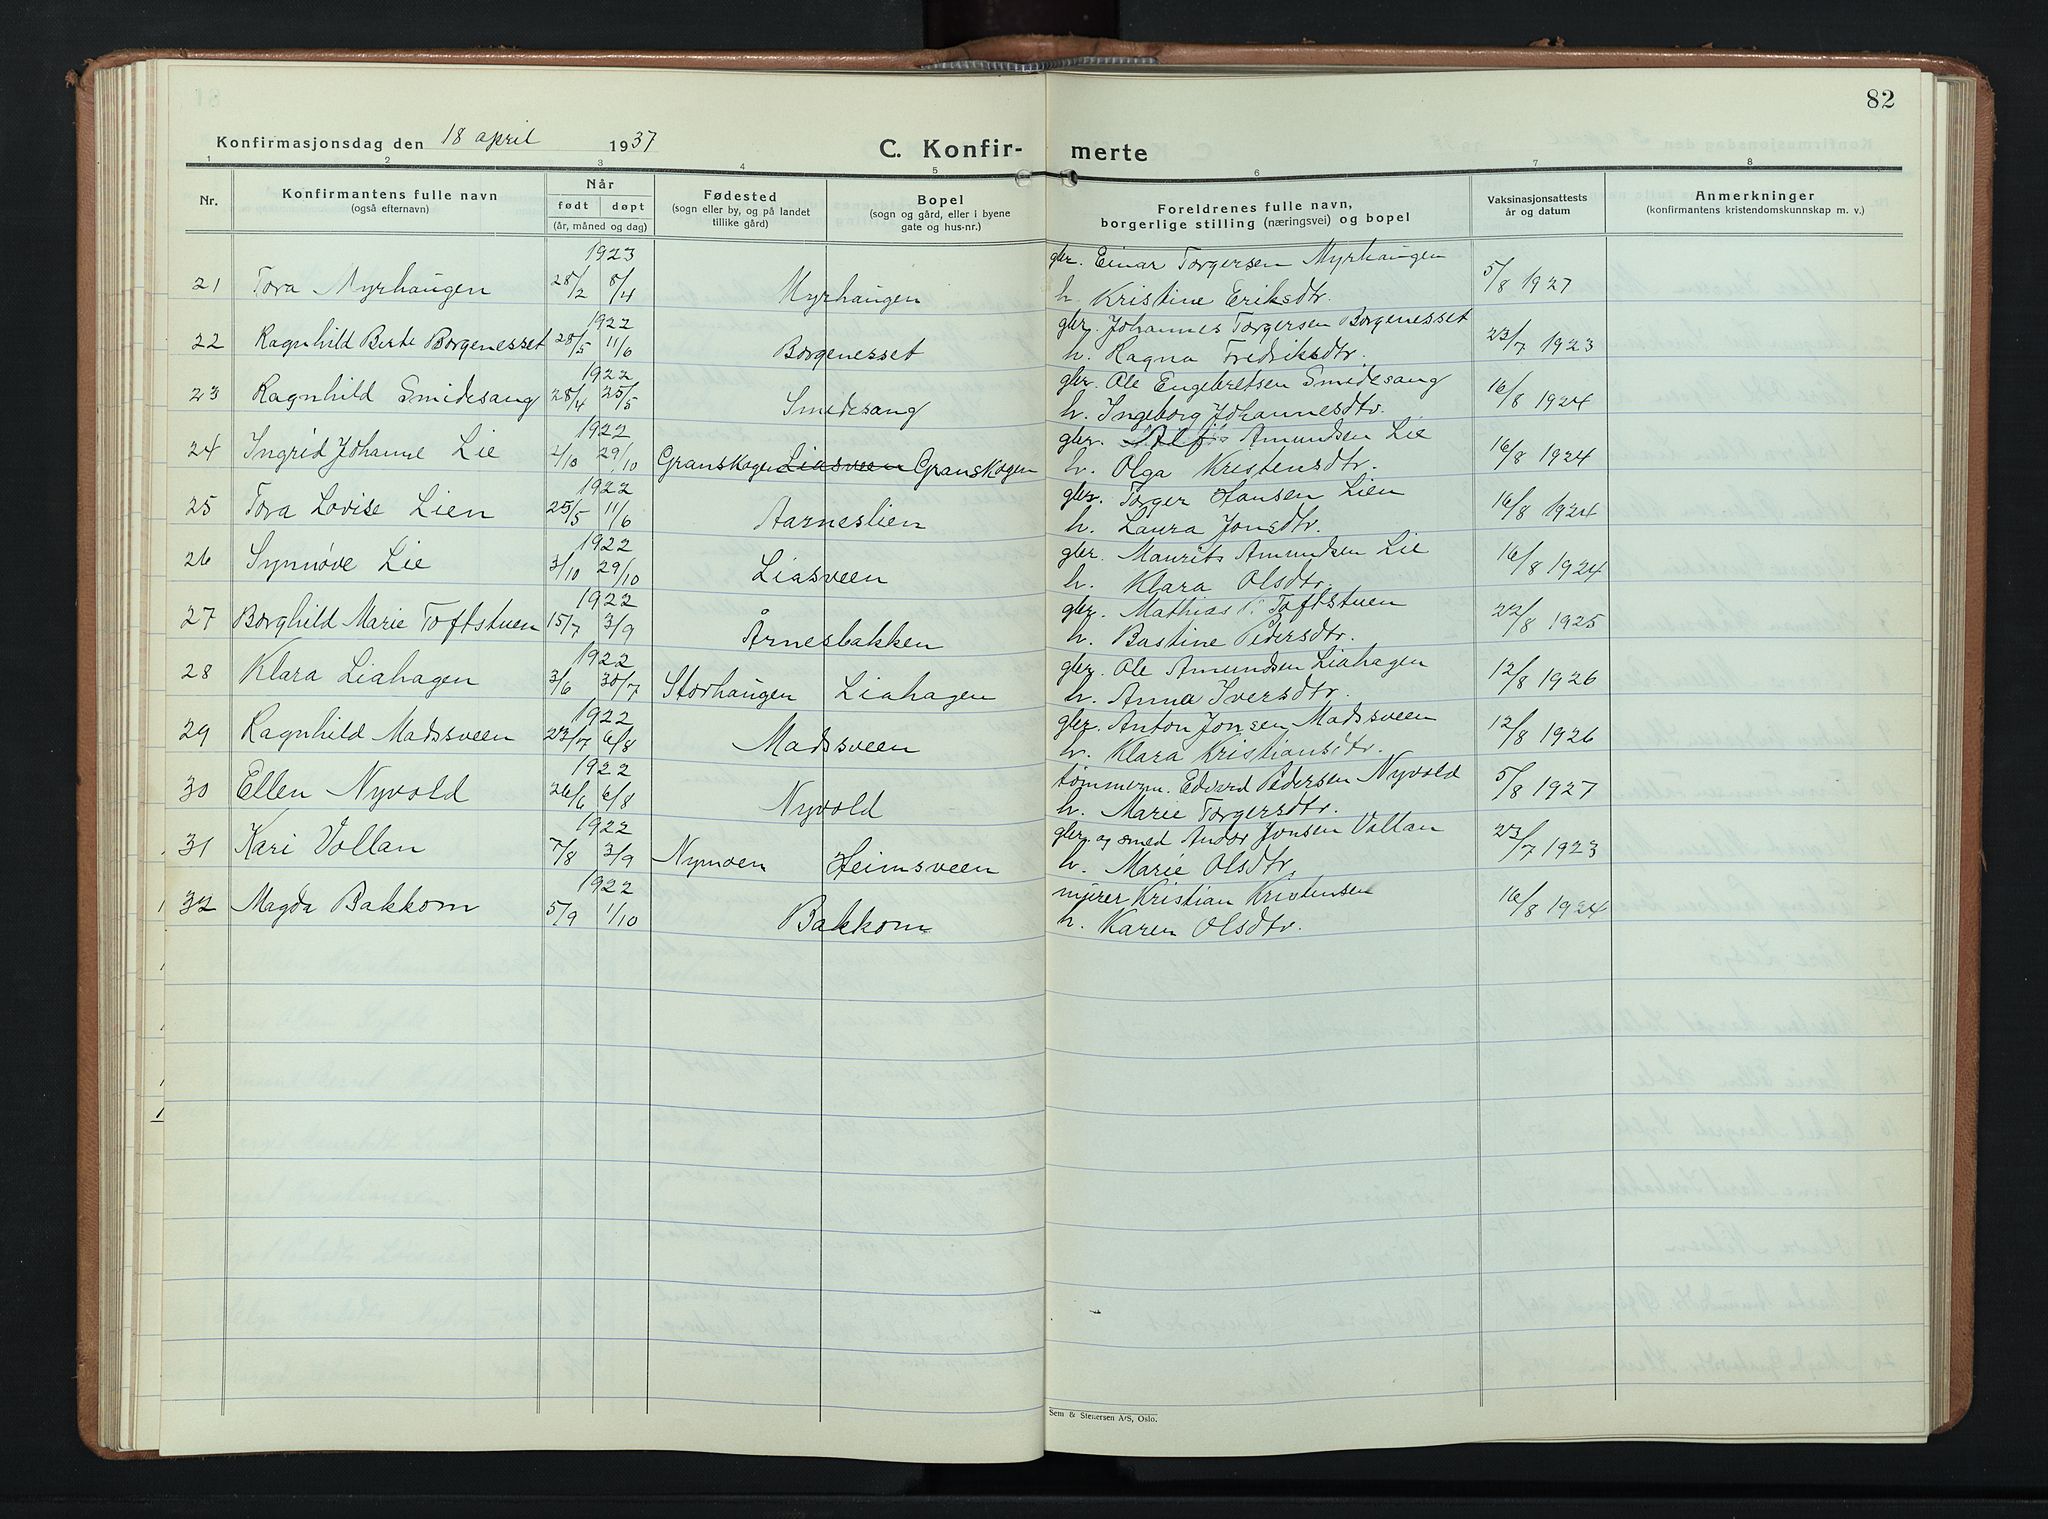 82
Konfirmasjonsdag den 18 april 1937
C. Konfir- merte
1 2 3 4 5 6 7 8
Nr. Konfirmantens fulle navn (også efternavn) Når født døpt (år, måned og dag) Fødested (sogn eller by, og på landet tillike gård) Bopel (sogn og gård, eller i byene gate og hus-nr.) Foreldrenes fulle navn, borgerlige stilling (næringsvei) og bopel Vaksinasjonsattests år og datum Anmerkninger (konfirmantens kristendomskunnskap m. v.)
1923 gbr. Einar Torgersen Myrhaugen
21 Tora Myrhaugen 28/2 8/4 Myrhaugen h. Kristine Eriksdtr. 5/8 1927
1922 gbr. Johannes Torgersen Borgenesset
22 Ragnhild Berte Borgenesset 28/5 11/6 Borgenesset h. Ragna Fredriksdtr. 23/7 1923
1922 gbr. Ole Engebretsen Smidesang
23 Ragnhild Smidesang 28/4 25/5 Smidesang h. Ingeborg Johannesdtr. 16/8 1924
1922 gbr. "Alf" Amundsen Lie
24 Ingrid Johanne Lie 2/10 29/10 Granskogen Liasveen Granskogen h. Olga Kristensdtr. 16/8 1924
1922 gbr. Torger Hansen Lien
25 Tora Lovise Lien 25/5 11/6 Aarneslien h. Laura Jonsdtr. 16/8 1924
1922 gbr. Maurits Amundsen Lie
26 Synnøve Lie 3/10 29/10 Liasveen h. Klara Olsdtr. 16/8 1924
1922 gbr. Mathias P. Toftstuen
27 Borghild Marie Toftstuen 15/7 3/9 Årnesbakken h. Bastine Pedersdtr. 22/8 1925
1922 gbr. Ole Amundsen Liahagen
28 Klara Liahagen 3/6 30/7 Storhaugen Liahagen h. Anna Iversdtr. 12/8 1926
1922 gbr. Anton Jonsen Madssveen
29 Ragnhild Madssveen 23/7 6/8 Madssveen h. Klara Kristiansdtr. 12/8 1926
1922 tømmerm. Edvard Pedersen Nyvold
30 Ellen Nyvold 26/6 6/8 Nyvold h. Marie Torgersdtr. 5/8 1927
1922 gbr. og smed Andor Jonsen Vollan
31 Kari Vollan 7/8 3/9 Nymoen Heimsveen h. Marie Olsdtr. 23/7 1923
1922 murer Kristian Kristensen
32 Magda Bakkom 5/9 1/10 Bakkom h. Karen Olsdtr. 16/8 1924
Sem & Stenersen A/S, Oslo.